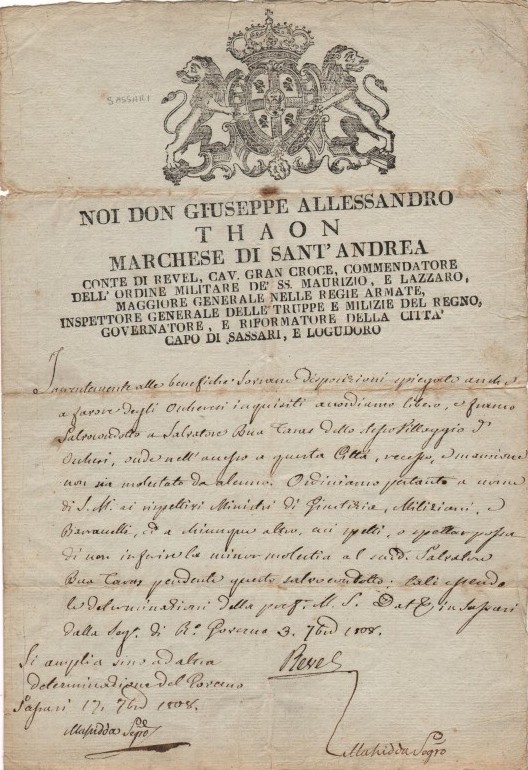 SASSARI
NOI DON GIUSEPPE ALLESSANDRO
THAON
MARCHESE DI SANT' ANDREA
CONTE DI REVEL, CAV. GRAN CROCE, COMMENDATORE
DELL' ORDINE MILITARE DE' SS. MAURIZIO, E LAZZARO,
MAGGIORE GENERALE NELLE REGIE ARMATE,
INSPETTORE GENERALE DELLE TRUPPE E MILIZIE DEL REGNO,
GOVERNATORE, E RIFORMATORE DELLA CITTA'
CAPO DI SASSARI, E LOGUDORO
alle benefiche Sovrane disposizioni spiegate anche
a favore degli inquisiti accordiamo libero, e franco
Salvocondotto a Salvatore Bua Taras dello stesso Villaggio d'
onde nell' accesso a questa Città, recesso, e mansione
non sia molestato da alcuno. Ordiniamo pertanto a nome
di S. M. ai rispettivi Ministri di Giustizia, Miliziani, e
Barancelli, ed a chiunque altro, cui spetti, o spettar possa
di non inferire la minor molestia al sud. Salvatore
Bua Taras pendente questo salvocondotto. Tali essendo
le determinazioni della pref. M. S. Dat. in Sassari
dalla Seg. di Rº Governo 3. 7bre 1808.
Si amplia sino ad altra
determinazione del Governo
Sassari 17. 7bre 1808.
Revel
Masidda Segro
Masidda Segro